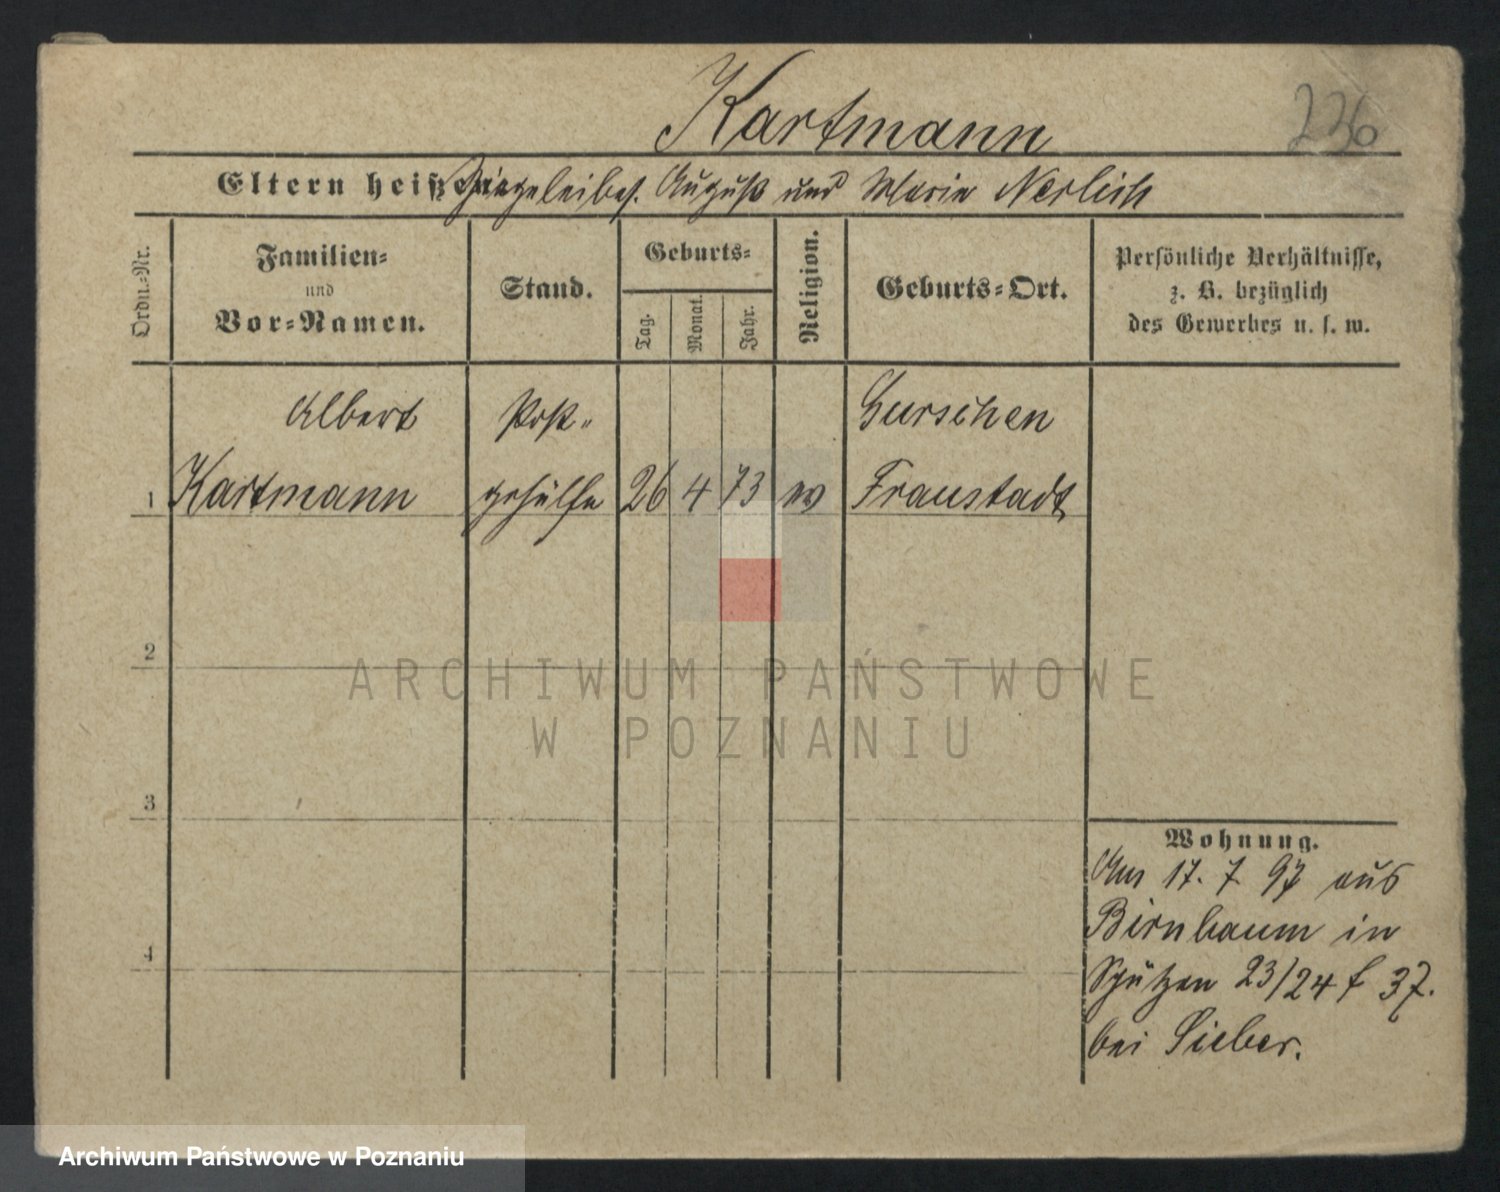 Kartmann
236
Eltern heißen: Ziegeleibes. August und Maria Nerlich
Ordn.-Nr.
Familien-
und
Vor-Namen.
Stand.
Geburts-
Tag.
Monat.
Jahr.
Religion.
Geburts-Ort.
Persönliche Verhältnisse,
z. B. bezüglich
des Gewerbes u. s. w.
Albert Post- Gurschen
1 Kartmann gehülfe 26 4 73 ev Fraustadt
2
ARCHIWUM PAŃSTWOWE
W POZNANIU
3
Wohnung.
Am 17. 7 97 aus
Birnbaum in
4
Schützen 23/24 f 37.
bei Sieber.
Archiwum Państwowe w Poznaniu